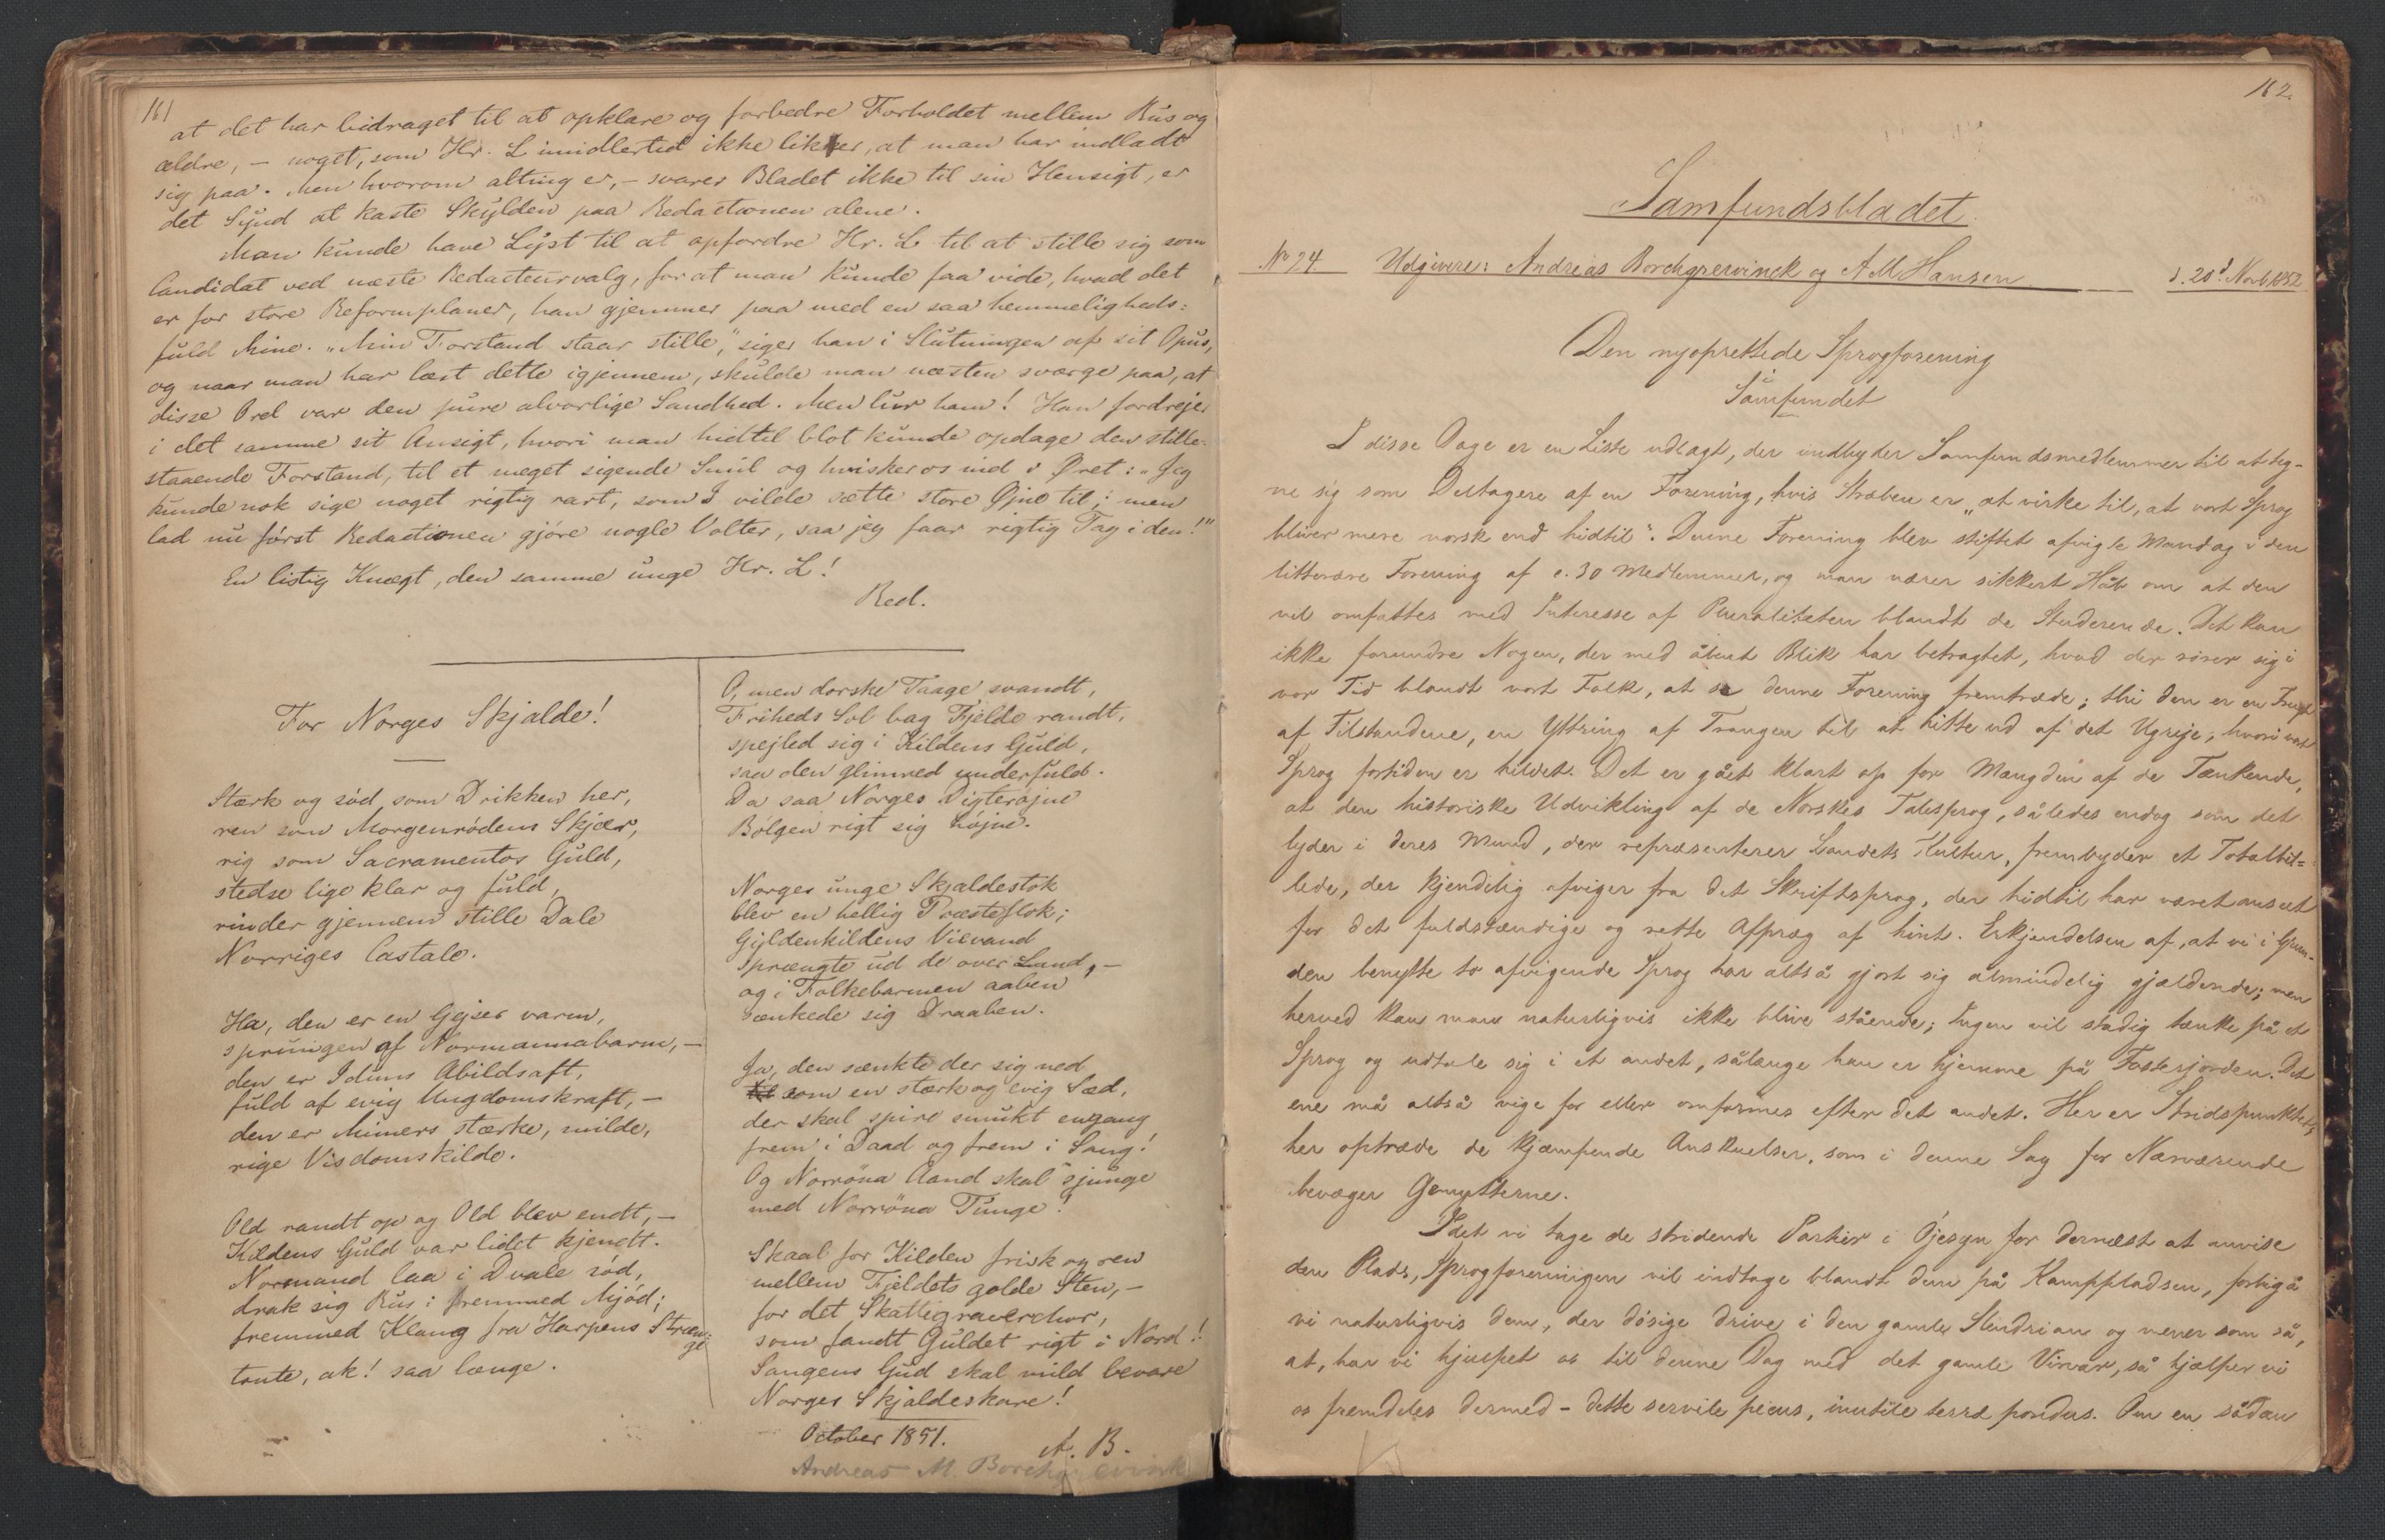 161
at det har bidraget til at opklare og forbedre Forholdet mellem Rus og
ældre, – noget, som Hr. L imidlertid ikke liker, at man har indladt
sig paa. Men hvorom alting er, – svarer Bladet ikke til sin Hensigt, er
det Synd at kaste Skylden paa Redactionen alene.
Man kunde have Lyst til at opfordre Hr. L til at stille sig som
Candidat ved næste Redacteurvalg, for at man kunde faa vide, hvad det
er for store Reformplaner, han gjemmer paa med en saa hemmeligheds=
fuld Mine. „Min Forstand staar stille", siger han i Slutningen af sit Opus,
og naar man har læst dette igjennem, skulde man næsten sværge paa, at
disse Ord var den pure alvorlige Sandhed. Men lur ham! Han fordrejer
i det samme sit Ansigt, hvori man hidtil blot kunde opdage den stille=
staaende Forstand, til et meget sigende Smil og hvisker os ind i Øret: „Jeg
kunde nok sige noget rigtig rart, som I vilde sætte store Øjne til; men
lad nu først Redactionen gjøre nogle Volter, saa jeg faar rigtig Tag i den!"
En listig Knægt, den samme unge Hr. L!
Red.
For Norges Skjalde!
Stærk og sød, som Drikken her,
ren som Morgenrødens Skjær,
rig som Sacramentos Guld,
stedse lige klar og fuld,
rinder gjennem stille Dale
Norriges Castale.
Ha, den er en Gejser varm,
sprungen af Normannabarm, –
den er Iduns Abildsaft,
fuld af evig Ungdomskraft, –
den er Mimers stærke, milde,
rige Visdomskilde.
Old randt op og Old blev endt, –
Kildens Guld var lidet kjendt.
Normand laa i Dvale sød,
drak sig Rus i fremmed Mjød;
fremmed Klang fra Harpens Stræn=
ge
tonte, ak! saa længe.
O, men dorske Taage svandt,
Friheds Sol bag Fjelde randt,
spejled sig i Kildens Guld,
saa den glimred underfuld.
Da saa Norges Digterøjne
Bølgen rigt sig højne.
Norges unge Skjaldeflok
blev en hellig Præsteflok;
Gyldenkildens Vievand
sprængte ud de over Land, –
og i Folkebarmen aaben
sænkede sig Draaben.
Ja, den sænkte der sig ned
som en stærk og evig Sæd,
der skal spire smukt engang
frem i Daad og frem i Sang!
Og Norrøna Aand skal sjunge
med Norrøna Tunge!
Skaal for Kilden frisk og ren
mellem Fjeldets golde Sten, –
for det Skattegraverchor,
som fandt Guldet rigt i Nord!
Sangens Gud skal mild bevare
Norges Skjaldeskare!
October 1851.
A. B.
Andreas M. Borchgrevink
162.
Samfundsbladet.
No 24 Udgivere: Andreas Borchgrevinck og A M Hansen d. 20d Novb 1852
Den nyoprettede Sprogforening
i
Samfundet
I disse Dage er en Liste udlagt, der indbyder Samfundsmedlemmer til at teg-
ne sig som Deltagere af en Forening, hvis Stræben er „at virke til, at vort Sprog
bliver mere norsk end hidtil". Denne Forening blev stiftet afvigte Mandag i den
litterære Forening af c. 30 Medlemmer, og man nærer sikkert Håb om at den
vil omfattes med Interesse af Pluraliteten blandt de Studerende. Det kan
ikke forundre Nogen, der med åbent Blik har betragtet, hvad der rører sig i
vor Tid blandt vort Folk, at se denne Forening fremtræde; thi den er en Frugt
af Tilstandene, en Yttring af Trangen til at hitte ud af det Ugreje, hvori vort
Sprog fortiden er hildet. Det er gået klart op for Mængden af de Tænkende,
at den historiske Udvikling af de Norskes Talesprog, således endog som det
lyder i deres Mund, der repræsenterer Landets Kultur, frembyder et Totalbil=
lede, der kjendelig afviger fra det Skriftsprog, der hidtil har været anseet
for det fuldstændige og rette Afpræg af hint. Erkjendelsen af, at vi i Grun-
den benytte to afvigende Sprog har altså gjort sig almindelig gjældende; men
herved kan man naturligvis ikke blive stående; Ingen vil stadig tænke på et
Sprog og udtale sig i et andet, sålænge han er hjemme på Fosterjorden. Det
ene må altså vige for eller omformes efter det andet. Her er Stridspunktet,
her optræde de kjæmpende Anskuelser, som i denne Sag for Nærværende
bevæger Gemytterne.
Idet vi tage de stridende Partier i Øjesyn for dernæst at anvise
den Plads, Sprogforeningen vil indtage blandt dem på Kamppladsen, forbigå
vi naturligvis dem, der døsige drive i den gamle Slendrian og mener som så,
at, har vi hjulpet os til denne Dag med det gamle Virvar, så hjælper vi
os fremdeles dermed – dette servile pecus, inutile terræ pondus. Om en sådan